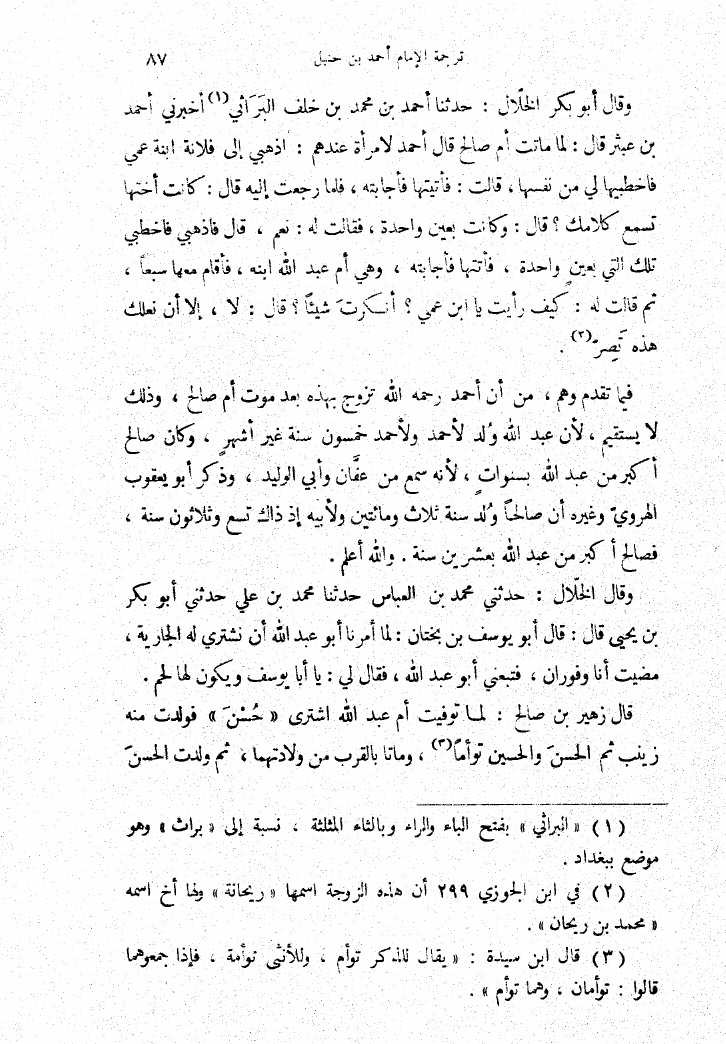 ترجمة الإمام أحمد بن حنبل ٨٧
وقال أبو بكر الخلّال : حدثنا أحمد بن محمد بن خلف البَرَاثي(١) أخبرني أحمد
بن عبثر قال : لما ماتت أم صالح قال أحمد لامرأة عندهم : اذهبي إلى فلانة ابنة عمي
فاخطبيها لي من نفسها ، قالت : فأتيتها فأجابته ، فلما رجعت إليه قال : كانت أختها
تسمع كلامك ؟ قال : وكانت بعين واحدة ، فقالت له : نعم ، قال فاذهبي فاخطبي
تلك التي بعينٍ واحدة ، فأتتها فأجابته ، وهي أم عبد الله ابنه ، فأقام معها سبعاً ،
ثم قالت له : كيف رأيت يا ابن عمي ؟ أنكرتَ شيئاً ؟ قال : لا ، إلا أن نعلك
هذه تَصِرّ(٢) .
فيما تقدم وهم ، من أن أحمد رحمه الله تزوج بهذه بعد موت أم صالح ، وذلك
لا يستقيم ، لأن عبد الله وُلد لأحمد ولأحمد خمسون سنة غير أشهرٍ ، وكان صالح
أكبر من عبد الله بسنواتٍ ، لأنه سمع من عفَّان وأبي الوليد ، وذكر أبو يعقوب
الهرويّ وغيره أن صالحاً وُلد سنة ثلاث ومائتين ولأبيه إذ ذاك تسع وثلاثون سنة ،
فصالح أكبر من عبد الله بعشرين سنة . والله أعلم .
وقال الخلّال : حدثني محمد بن العباس حدثنا محمد بن علي حدثني أبو بكر
بن يحيى قال : قال أبو يوسف بن بختان : لما أمرنا أبو عبد الله أن نشتري له الجارية ،
مضيت أنا وفوران ، فتبعني أبو عبد الله ، فقال لي : يا أبا يوسف ويكون لها لحم .
قال زهير بن صالح : لمــا توفيت أم عبد الله اشترى « حُسْنَ » فولدت منه
زينب ثم الحسنَ والحسين توأماً(٣) ، وماتا بالقرب من ولادتهما ، ثم ولدت الحسنَ
(١) « البراثي » بفتح الباء والراء وبالثاء المثلثة ، نسبة إلى « براث » وهو
موضع ببغداد .
(٢) في ابن الجوزي ٢٩٩ أن هذه الزوجة اسمها « ريحانة » ولها أخ اسمه
« محمد بن ريحان » .
(٣) قال ابن سيدة : « يقال للذكر توأم ، وللأنثى توأمة ، فإذا جمعوهما
قالوا : توأمان ، وهما توأم » .